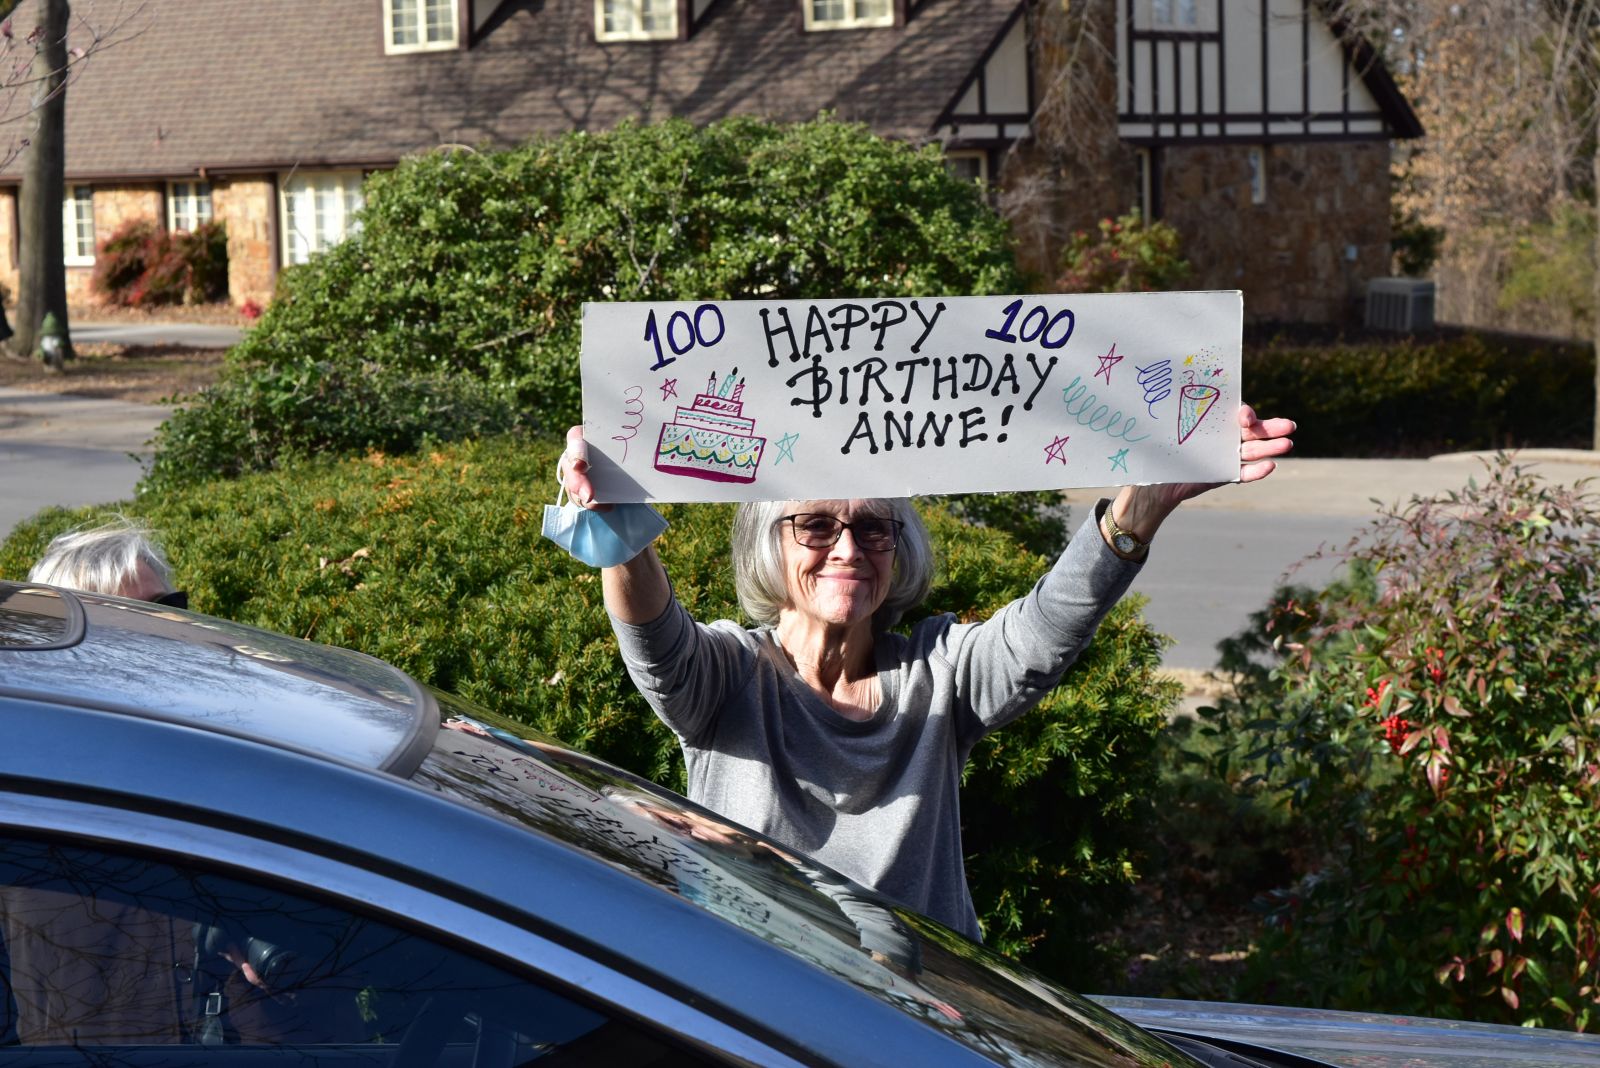 100 HAPPY 100
BIRTHDAY
ANNE!